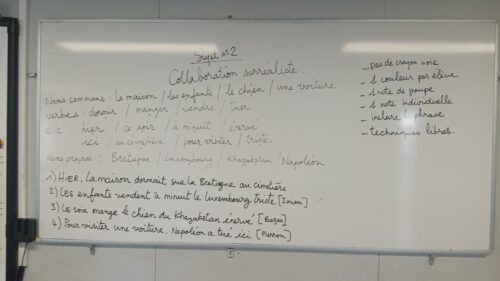 Sujet n°2
Collaboration surréaliste.
Noms communs : la maison / les enfants / le chien / une voiture
Verbes : dormir / manger / vendre / tuer
C.C. : hier / ce soir / à minuit / énervé
ici / au cimetière / pour visiter / triste
Noms propres : Bretagne / Luxembourg / Khazakstan / Napoléon
1) HIER, la maison dormait sur la Bretagne au cimetière
2) LES enfants vendent à minuit le Luxembourg triste
3) Ce soir mange le chien du Khazakstan énervé
4) Pour visiter une voiture, Napoléon a tué ici
- pas de crayon noir
- 1 couleur par élève
- 1 note de groupe
- 1 note individuelle
- inclure la phrase
- techniques libres.